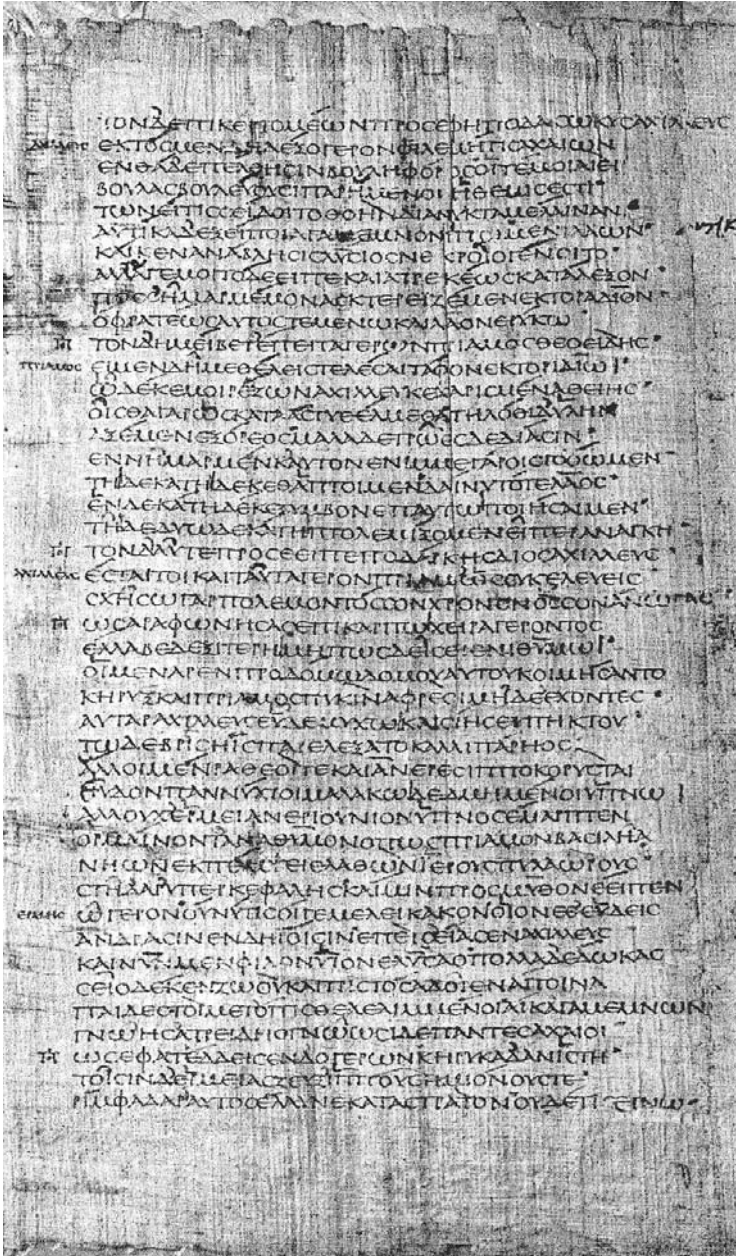 ΤΟΝΔΕΠΙΚΕΡΤΟΜΕΩΝΠΡΟϹΕΦΗΠΟΔΑϹΩΚΥϹΑΧΙΛΛΕΥϹ
ΕΚΤΟϹΜΕΝΔΗΛΕΞΟΓΕΡΟΝΦΙΛΕΜΗΤΙϹΑΧΑΙΩΝ
ΕΝΘΑΔΕΠΕΛΘΗϹΙΝΒΟΥΛΗΦΟΡΟϹΟΙΤΕΜΟΙΑΙΕΙ
ΒΟΥΛΑϹΒΟΥΛΕΥΟΥϹΙΠΑΡΗΜΕΝΟΙΗΘΕΜΙϹΕϹΤΙ
ΤΩΝΕΙΤΙϹϹΕΙΔΟΙΤΟΘΟΗΝΔΙΑΝΥΚΤΑΜΕΛΑΙΝΑΝ
ΑΥΤΙΚΑΔΕΞΕΙΠΟΙΑΓΑΜΕΜΝΟΝΙΠΟΙΜΕΝΙΛΑΩΝ
ΚΑΙΚΕΝΑΝΑΒΛΗϹΙϹΛΥϹΙΟϹΝΕΚΡΟΙΟΓΕΝΟΙΤΟ
ΑΛΛΑΓΕΜΟΙΤΟΔΕΕΙΠΕΚΑΙΑΤΡΕΚΕΩϹΚΑΤΑΛΕΞΟΝ
ΠΟϹϹΗΜΑΡΜΕΜΟΝΑϹΚΤΕΡΕΙΖΕΜΕΝΕΚΤΟΡΑΔΙΟΝ
ΟΦΡΑΤΕΩϹΑΥΤΟϹΤΕΜΕΝΩΚΑΙΛΑΟΝΕΡΥΚΩ
ΤΟΝΔΗΜΕΙΒΕΤΕΠΕΙΤΑΓΕΡΩΝΠΡΙΑΜΟϹΘΕΟΕΙΔΗϹ
ΠΡΙΑΜΟϹ ΕΙΜΕΝΔΗΜΕΘΕΛΕΙϹΤΕΛΕϹΑΙΤΑΦΟΝΕΚΤΟΡΙΔΙΩΙ
ΩΔΕΚΕΜΟΙΡΕΖΩΝΑΧΙΛΛΕΥΚΕΧΑΡΙϹΜΕΝΑΘΕΙΗϹ
ΟΙϹΘΑΓΑΡΩϹΚΑΤΑΑϹΤΥΕΕΛΜΕΘΑΤΗΛΟΘΙΔΥΛΗ
ΑΞΕΜΕΝΕΞΟΡΕΟϹΜΑΛΑΔΕΤΡΩΕϹΔΕΔΙΑϹΙΝ
ΕΝΝΗΜΑΡΜΕΝΚΑΥΤΟΝΕΝΙΜΜΕΓΑΡΟΙϹΓΟΟΩΜΕΝ
ΤΗΔΕΚΑΤΗΔΕΚΕΘΑΠΤΟΙΜΕΝΔΑΙΝΥΤΟΤΕΛΑΟϹ
ΕΝΔΕΚΑΤΗΔΕΚΕΤΥΜΒΟΝΕΠΑΥΤΩΠΟΙΗϹΑΙΜΕΝ
ΤΗΔΕΔΥΩΔΕΚΑΤΗΠΤΟΛΕΜΙΞΟΜΕΝΕΙΠΕΡΑΝΑΓΚΗ
ΤΟΝΔΑΥΤΕΠΡΟϹΕΕΙΠΕΠΟΔΑΡΚΗϹΔΙΟϹΑΧΙΛΛΕΥϹ
ΑΧΙΛΛΕΥϹ ΕϹΤΑΙΤΟΙΚΑΙΤΑΥΤΑΓΕΡΟΝΠΡΙΑΜΩϹϹΥΚΕΛΕΥΕΙϹ
ϹΧΗϹΩΓΑΡΠΟΛΕΜΟΝΤΟϹϹΟΝΧΡΟΝΟΝΟϹϹΟΝΑΝΩΓΑϹ
ΩϹΑΡΑΦΩΝΗϹΑϹΕΠΙΚΑΡΠΩΧΕΙΡΑΓΕΡΟΝΤΟϹ
ΕΛΛΑΒΕΔΕΞΙΤΕΡΗΜΗΠΩϹΔΕΙϹΕΙΕΝΙΘΥΜΩΙ
ΟΙΜΕΝΑΡΕΝΠΡΟΔΟΜΩΔΟΜΟΥΑΥΤΟΥΚΟΙΜΗϹΑΝΤΟ
ΚΗΡΥΞΚΑΙΠΡΙΑΜΟϹΠΥΚΙΝΑΦΡΕϹΙΜΗΔΕΕΧΟΝΤΕϹ
ΑΥΤΑΡΑΧΙΛΛΕΥϹΕΥΔΕΜΥΧΩΚΛΙϹΙΗϹΕΥΠΗΚΤΟΥ
ΤΩΔΕΒΡΙϹΗΙϹΠΑΡΕΛΕΞΑΤΟΚΑΛΛΙΠΑΡΗΟϹ
ΑΛΛΟΙΜΕΝΡΑΘΕΟΙΤΕΚΑΙΑΝΕΡΕϹΙΠΠΟΚΟΡΥϹΤΑΙ
ΕΥΔΟΝΠΑΝΝΥΧΙΟΙΜΑΛΑΚΩΔΕΔΜΗΜΕΝΟΙΥΠΝΩΙ
ΑΛΛΟΥΧΕΡΜΕΙΑΝΕΡΙΟΥΝΙΟΝΥΠΝΟϹΕΜΑΡΠΤΕΝ
ΟΡΜΑΙΝΟΝΤΑΝΑΘΥΜΟΝΟΠΩϹΠΡΙΑΜΟΝΒΑϹΙΛΗΑ
ΝΗΩΝΕΚΠΕΜΨΕΙΕΛΑΘΩΝΙΕΡΟΥϹΠΥΛΑΩΡΟΥϹ
ϹΤΗΔΑΡΥΠΕΡΚΕΦΑΛΗϹΚΑΙΜΙΝΠΡΟϹΜΥΘΟΝΕΕΙΠΕΝ
ΕΡΜΗϹ ΩΓΕΡΟΝΟΥΝΥΤΙϹΟΙΓΕΜΕΛΕΙΚΑΚΟΝΟΙΟΝΕΘΕΥΔΕΙϹ
ΑΝΔΡΑϹΙΝΕΝΔΗΙΟΙϹΙΝΕΠΕΙϹΕΙΑϹΕΝΑΧΙΛΛΕΥϹ
ΚΑΙΝΥΝΜΕΝΦΙΛΟΝΥΙΟΝΕΛΥϹΑΟΠΟΛΛΑΔΕΔΩΚΑϹ
ϹΕΙΟΔΕΚΕΝΖΩΟΥΚΑΙΤΡΙϹΤΟϹΑΔΟΙΕΝΑΠΟΙΝΑ
ΠΑΙΔΕϹΤΟΙΜΕΤΟΠΙϹΘΕΛΕΛΙΜΜΕΝΟΙΑΙΚΑΓΑΜΕΜΝΩΝ
ΓΝΩΗϹΑΤΡΕΙΔΗϹΓΝΩΩϹΙΔΕΠΑΝΤΕϹΑΧΑΙΟΙ
ΩϹΕΦΑΤΕΔΔΕΙϹΕΝΔΟΓΕΡΩΝΚΗΡΥΚΑΔΑΝΙϹΤΗ
ΤΟΙϹΙΝΔΕΡΜΕΙΑϹΖΕΥΞΙΠΠΟΥϹΗΜΙΟΝΟΥϹΤΕ
ΡΙΜΦΑΔΑΡΑΥΤΟϹΕΛΑΥΝΕΚΑΤΑϹΤΡΑΤΟΝΟΥΔΕΤΙϹΕΓΝΩ